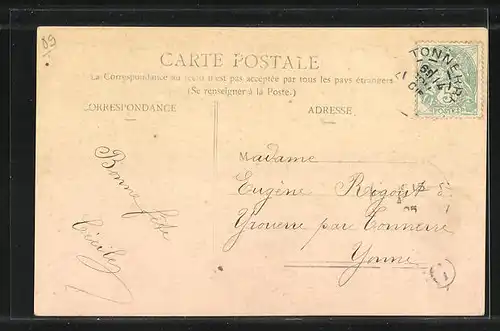 89
CARTE POSTALE
La Correspondance au recto n'est pas acceptée par tous les pays étrangers
(Se renseigner à la Poste.)
CORRESPONDANCE
ADRESSE
TONNERRE
POSTES
Bonne fête
Cécile
Madame
Eugène Rigout
Yrouerre par Tonnerre
Yonne
1